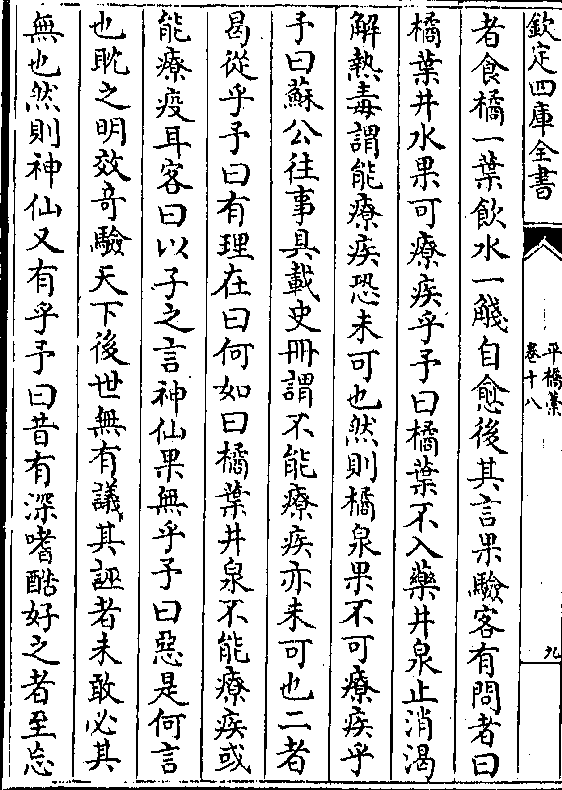 欽定四庫全書
平橋藁
卷十八
九
者食橘一葉飲水一觥自愈後其言果驗客有問者曰
橘葉井水果可療疾乎予曰橘葉不入藥井泉止消渴
解熱毒謂能療疾恐未可也然則橘泉果不可療疾乎
予曰蘇公往事具載史冊謂不能療疾亦未可也二者
曷從乎予曰有理在曰何如曰橘葉井泉不能療疾或
能療疫耳客曰以子之言神仙果無乎予曰惡是何言
也耽之明效竒驗天下後世無有議其誣者未敢必其
無也然則神仙又有乎予曰昔有深嗜酷好之者至忘